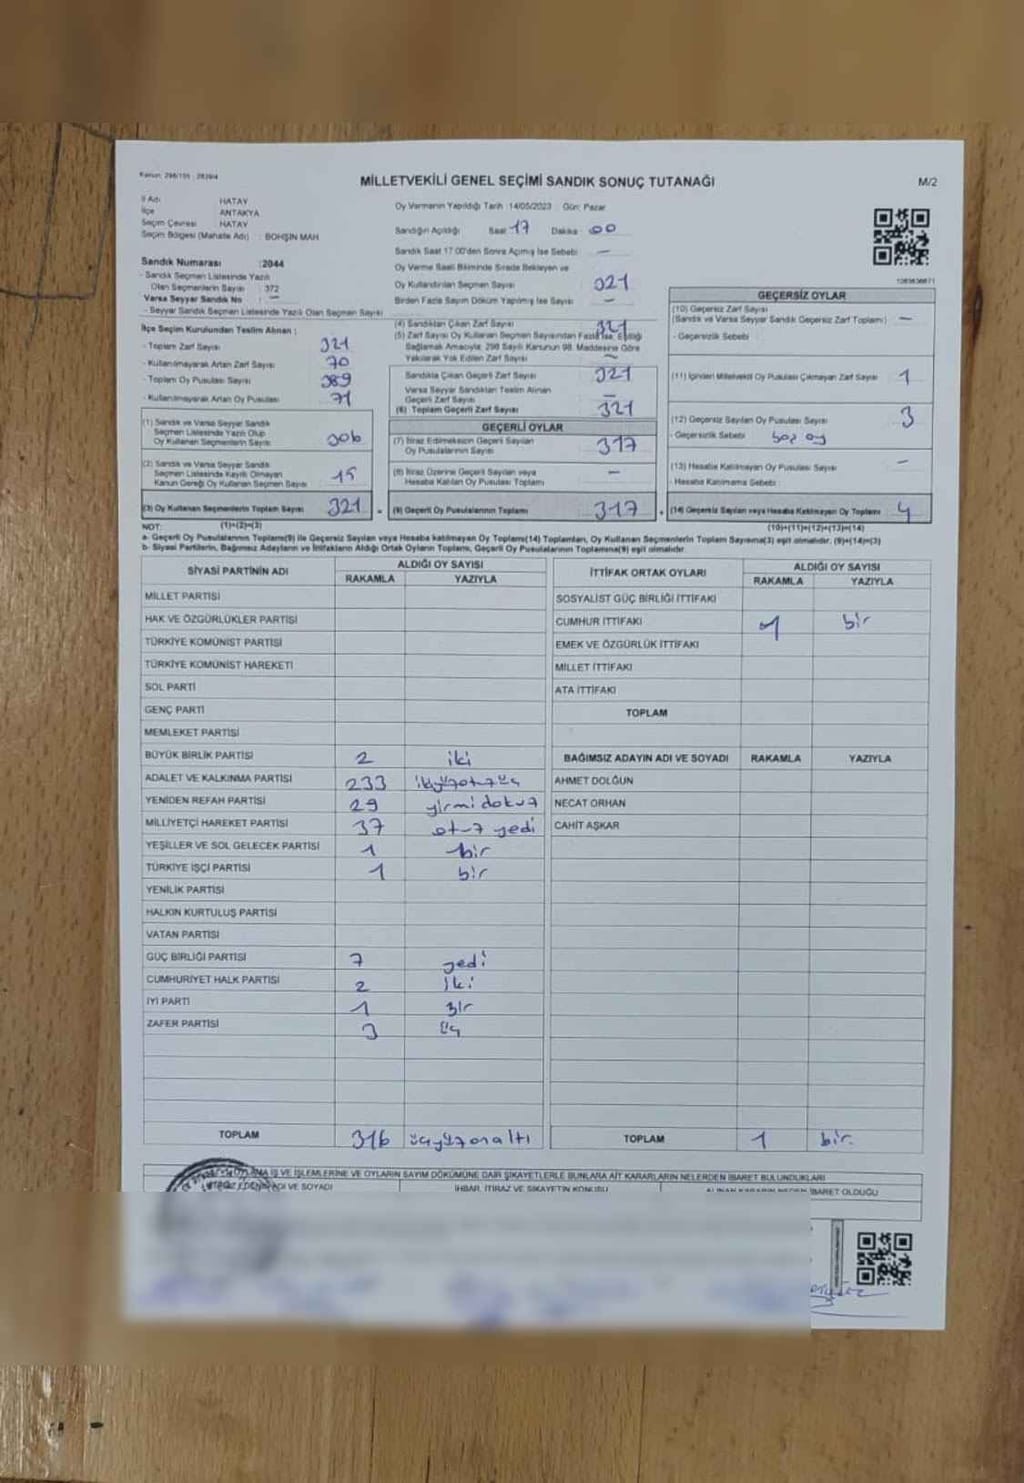 Kanun: 298/105 - 2839/4
MİLLETVEKİLİ GENEL SEÇİMİ SANDIK SONUÇ TUTANAĞI
M/2
İl Adı HATAY
İlçe ANTAKYA
Seçim Çevresi HATAY
Seçim Bölgesi (Mahalle Adı) : BOHŞİN MAH
Sandık Numarası :2044
- Sandık Seçmen Listesinde Yazılı
Olan Seçmenlerin Sayısı : 372
Varsa Seyyar Sandık No : —
- Seyyar Sandık Seçmen Listesinde Yazılı Olan Seçmen Sayısı :
İlçe Seçim Kurulundan Teslim Alınan :
- Toplam Zarf Sayısı 321
- Kullanılmayarak Artan Zarf Sayısı 70
- Toplam Oy Pusulası Sayısı 389
- Kullanılmayarak Artan Oy Pusulası 71
(1) Sandık ve Varsa Seyyar Sandık
Seçmen Listesinde Yazılı Olup
Oy Kullanan Seçmenlerin Sayısı 306
(2) Sandık ve Varsa Seyyar Sandık
Seçmen Listesinde Kayıtlı Olmayan
Kanun Gereği Oy Kullanan Seçmen Sayısı 15
(3) Oy Kullanan Seçmenlerin Toplam Sayısı 321
(1)+(2)=(3)
Oy Vermenin Yapıldığı Tarih :14/05/2023 Gün: Pazar
Sandığın Açıldığı Saat 17 Dakika 00
Sandık Saat 17.00'den Sonra Açılmış İse Sebebi : —
Oy Verme Saati Bitiminde Sırada Bekleyen ve
Oy Kullandırılan Seçmen Sayısı 321
Birden Fazla Sayım Döküm Yapılmış İse Sayısı —
(4) Sandıktan Çıkan Zarf Sayısı 321
(5) Zarf Sayısı Oy Kullanan Seçmen Sayısından Fazla İse, Eşitliği
Sağlamak Amacıyla, 298 Sayılı Kanunun 98. Maddesine Göre
Yakılarak Yok Edilen Zarf Sayısı —
Sandıkta Çıkan Geçerli Zarf Sayısı 321
Varsa Seyyar Sandıktan Teslim Alınan
Geçerli Zarf Sayısı —
(6) Toplam Geçerli Zarf Sayısı 321
GEÇERLİ OYLAR
(7) İtiraz Edilmeksizin Geçerli Sayılan
Oy Pusulalarının Sayısı 317
(8) İtiraz Üzerine Geçerli Sayılan veya
Hesaba Katılan Oy Pusulası Toplamı —
(9) Geçerli Oy Pusulalarının Toplamı 317
GEÇERSİZ OYLAR
(10) Geçersiz Zarf Sayısı
(Sandık ve Varsa Seyyar Sandık Geçersiz Zarf Toplamı) —
- Geçersizlik Sebebi
(11) İçinden Milletvekili Oy Pusulası Çıkmayan Zarf Sayısı 1
(12) Geçersiz Sayılan Oy Pusulası Sayısı 3
- Geçersizlik Sebebi boş oy
(13) Hesaba Katılmayan Oy Pusulası Sayısı —
- Hesaba Katılmama Sebebi :
(14) Geçersiz Sayılan veya Hesaba Katılmayan Oy Toplamı 4
(10)+(11)+(12)+(13)=(14)
NOT:
a- Geçerli Oy Pusulalarının Toplamı(9) ile Geçersiz Sayılan veya Hesaba katılmayan Oy Toplamı(14) Toplamları, Oy Kullanan Seçmenlerin Toplam Sayısına(3) eşit olmalıdır. (9)+(14)=(3)
b- Siyasi Partilerin, Bağımsız Adayların ve İttifakların Aldığı Ortak Oyların Toplamı, Geçerli Oy Pusulalarının Toplamına(9) eşit olmalıdır.
SİYASİ PARTİNİN ADI ALDIĞI OY SAYISI
RAKAMLA YAZIYLA
MİLLET PARTİSİ
HAK VE ÖZGÜRLÜKLER PARTİSİ
TÜRKİYE KOMÜNİST PARTİSİ
TÜRKİYE KOMÜNİST HAREKETİ
SOL PARTİ
GENÇ PARTİ
MEMLEKET PARTİSİ
BÜYÜK BİRLİK PARTİSİ 2 iki
ADALET VE KALKINMA PARTİSİ 233 ikiyüzotuzüç
YENİDEN REFAH PARTİSİ 29 yirmi dokuz
MİLLİYETÇİ HAREKET PARTİSİ 37 otuz yedi
YEŞİLLER VE SOL GELECEK PARTİSİ 1 bir
TÜRKİYE İŞÇİ PARTİSİ 1 bir
YENİLİK PARTİSİ
HALKIN KURTULUŞ PARTİSİ
VATAN PARTİSİ
GÜÇ BİRLİĞİ PARTİSİ 7 yedi
CUMHURİYET HALK PARTİSİ 2 iki
İYİ PARTİ 1 bir
ZAFER PARTİSİ 3 üç
TOPLAM 316 üçyüzonaltı
İTTİFAK ORTAK OYLARI ALDIĞI OY SAYISI
RAKAMLA YAZIYLA
SOSYALİST GÜÇ BİRLİĞİ İTTİFAKI
CUMHUR İTTİFAKI 1 bir
EMEK VE ÖZGÜRLÜK İTTİFAKI
MİLLET İTTİFAKI
ATA İTTİFAKI
TOPLAM
BAĞIMSIZ ADAYIN ADI VE SOYADI RAKAMLA YAZIYLA
AHMET DOLĞUN
NECAT ORHAN
CAHİT AŞKAR
TOPLAM 1 bir.
OYLAMA İŞ VE İŞLEMLERİNE VE OYLARIN SAYIM DÖKÜMÜNE DAİR ŞİKAYETLERLE BUNLARA AİT KARARLARIN NELERDEN İBARET BULUNDUKLARI
ADI VE SOYADI İHBAR, İTİRAZ VE ŞİKAYETİN KONUSU İBARET OLDUĞU